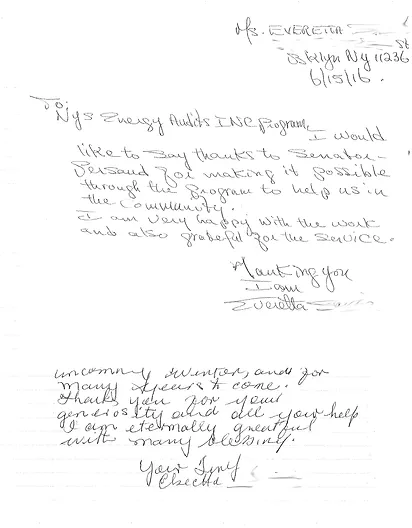 Ms. EVERETTA
St
oklyn Ny 11236
6/15/16.
To,
Nys Energy Audits INC Program,
I would
like to say thanks to Senator-
Persaud for making it possible
through the program to help us in
the community.
I am very happy with the work
and also grateful for the service.
Thanking you
I am
Everetta
uncomming winter, and for
many years to come.
thank you for your
generosity and all your help
I am eternally greatful
with many blessing.
Your